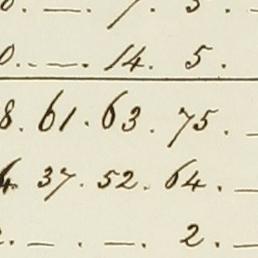 0. . — . 14. 5.
8. 61. 63. 75. —
4 37. 52. 64. —
. — . — . 2. —